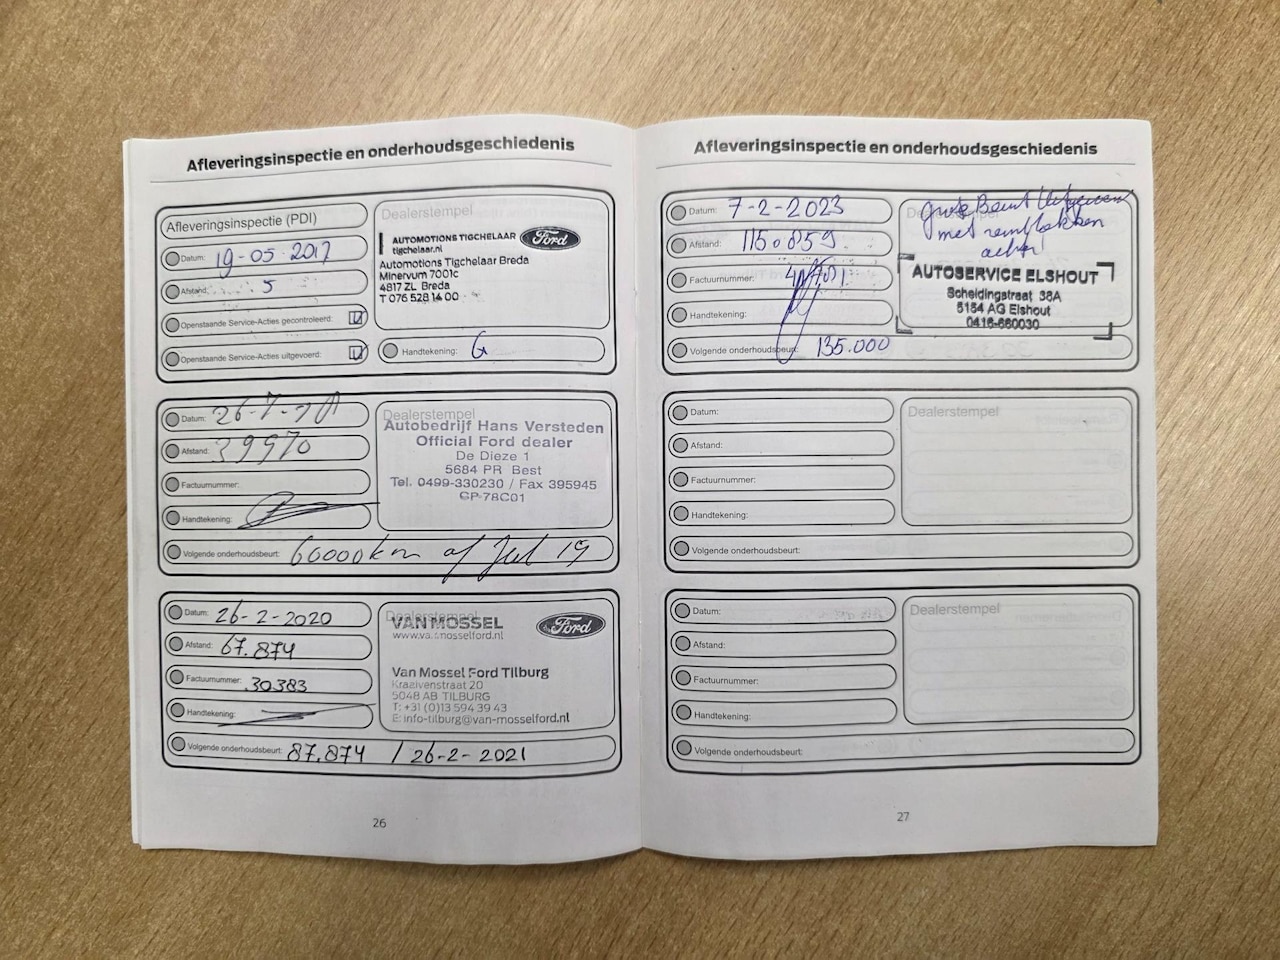 Afleveringsinspectie en onderhoudsgeschiedenis
Afleveringsinspectie (PDI)
Datum: 19-05-2017
Afstand: 5
Openstaande Service-Acties gecontroleerd:
Openstaande Service-Acties uitgevoerd:
Dealerstempel
AUTOMOTIONS TIGCHELAAR Ford
tigchelaar.nl
Automotions Tigchelaar Breda
Minervum 7001c
4817 ZL Breda
T 076 528 14 00
Handtekening: G
Datum: 26-7-
Afstand: 39970
Factuurnummer:
Handtekening:
Dealerstempel
Autobedrijf Hans Versteden
Official Ford dealer
De Dieze 1
5684 PR Best
Tel. 0499-330230 / Fax 395945
CP-78C01
Volgende onderhoudsbeurt: 60000 km of Jul 19
Datum: 26-2-2020
Afstand: 67.874
Factuurnummer: 30383
Handtekening:
Dealerstempel
VAN MOSSEL Ford
www.vanmosselford.nl
Van Mossel Ford Tilburg
Kraaivenstraat 20
5048 AB TILBURG
T: +31 (0)13 594 39 43
E: info-tilburg@van-mosselford.nl
Volgende onderhoudsbeurt: 87.874 / 26-2-2021
26
Afleveringsinspectie en onderhoudsgeschiedenis
Datum: 7-2-2023
Afstand: 115.859
Factuurnummer:
Handtekening:
grote Beurt
met remblokken
achter
AUTOSERVICE ELSHOUT
Scheidingstraat 38A
5154 AG Elshout
0416-660030
Volgende onderhoudsbeurt: 135.000
Datum:
Afstand:
Factuurnummer:
Handtekening:
Dealerstempel
Volgende onderhoudsbeurt:
Datum:
Afstand:
Factuurnummer:
Handtekening:
Dealerstempel
Volgende onderhoudsbeurt:
27